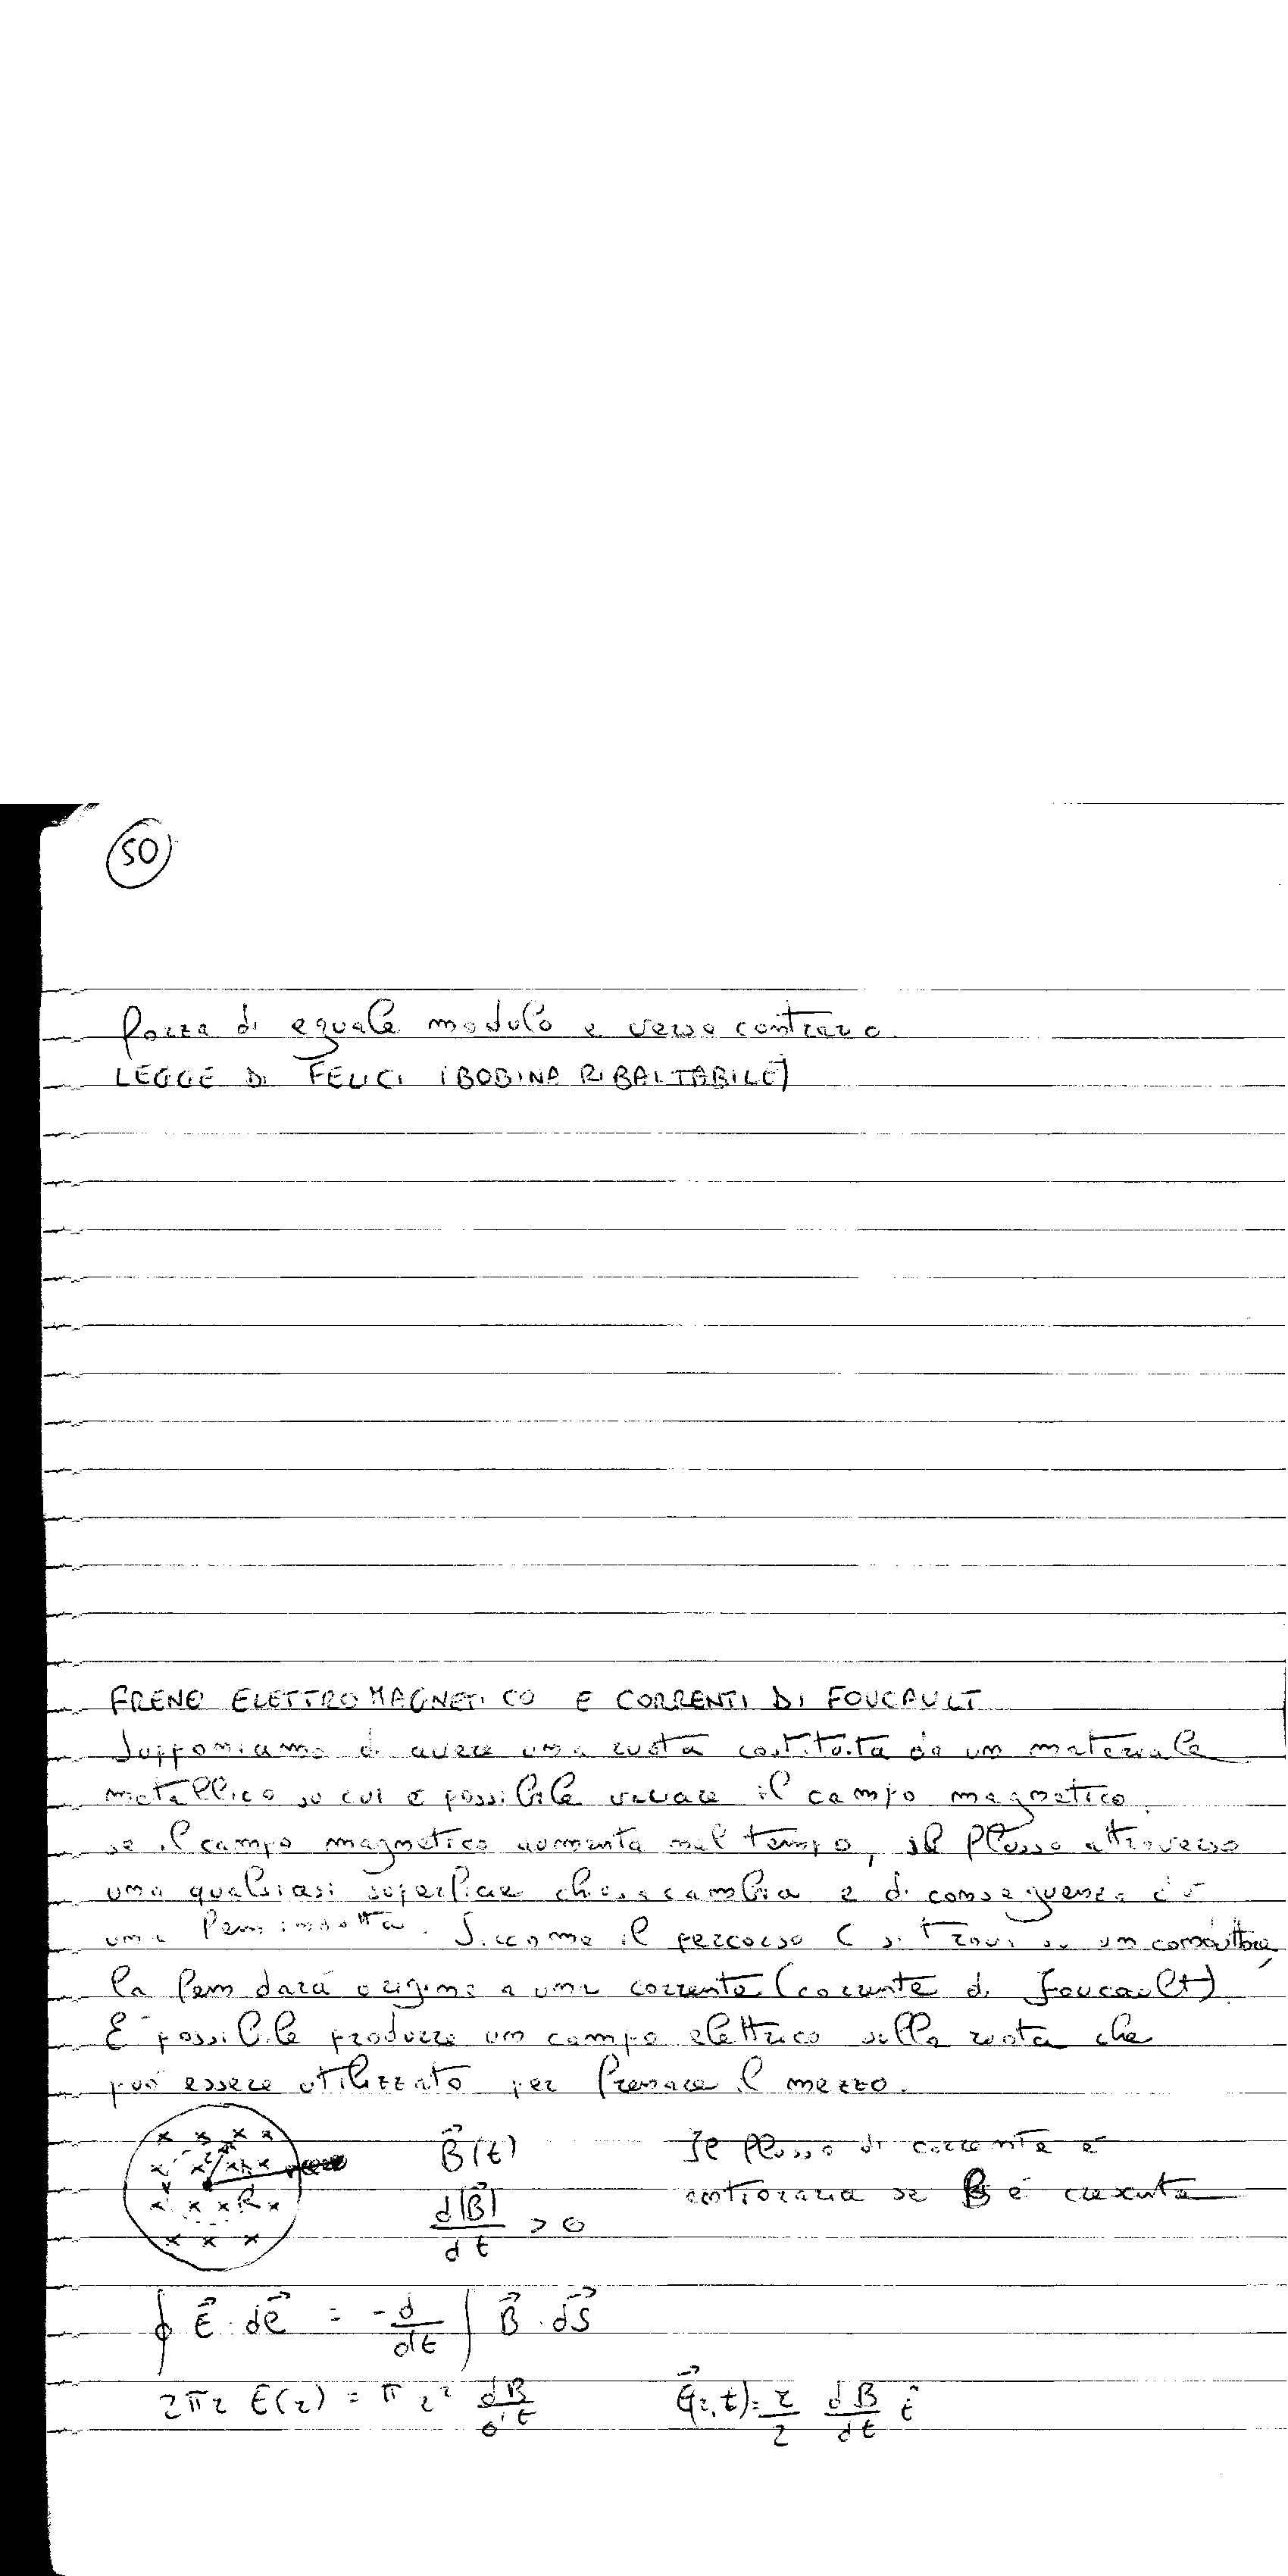 50
forza di eguale modulo e verso contrario.
LEGGE DI FELICI (BOBINA RIBALTABILE)
FRENO ELETTROMAGNETICO E CORRENTI DI FOUCAULT
Supponiamo di avere una ruota costituita da un materiale
metallico su cui è possibile variare il campo magnetico.
se il campo magnetico aumenta nel tempo, il flusso attraverso
una qualsiasi superficie chiusa cambia e di conseguenza c'è
una fem indotta. Siccome il percorso C si trova su un conduttore,
la fem darà origine a una corrente (corrente di foucault).
È possibile produrre un campo elettrico sulla ruota che
può essere utilizzato per frenare il mezzo.
B⃗(t) Il flusso di corrente è
d|B⃗|/dt > 0 antioraria se B è crescente
∮ E⃗ · dl⃗ = -d/dt ∫ B⃗ · dS⃗
2πr E(r) = π r² dB/dt E⃗(r,t) = r/2 dB/dt t̂